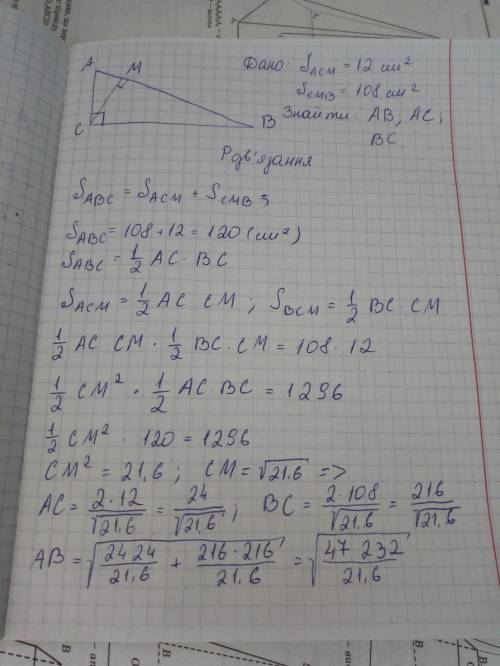 Дано: S_ACM = 12 см²
S_CMB = 108 см²
Знайти: AB, AC;
BC
A
M
C
B
Розв'язання
S_ABC = S_ACM + S_CMB;
S_ABC = 108 + 12 = 120 (см²)
S_ABC = 1/2 AC · BC
S_ACM = 1/2 AC · CM ; S_BCM = 1/2 BC · CM
1/2 AC · CM · 1/2 BC · CM = 108 · 12
1/2 CM² · 1/2 AC · BC = 1296
1/2 CM² · 120 = 1296
CM² = 21,6 ; CM = √21.6 =>
AC = 2·12/√21.6 = 24/√21,6 ; BC = 2·108/√21.6 = 216/√21,6
AB = √(24·24/21.6 + 216·216/21.6) = √(47 232/21.6)